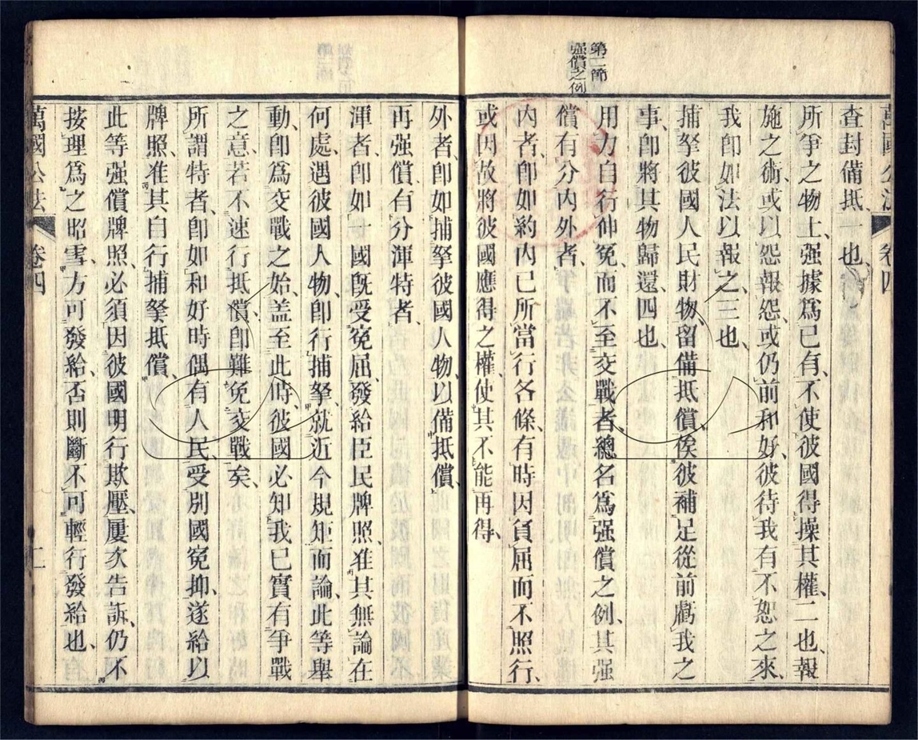 萬國公法 卷四
查封備抵一也
所爭之物土强據爲己有不使彼國得操其權二也報
施之術或以怨報怨或仍前和好彼待我有不恕之來
我卽如法以報之三也
捕拏彼國人民財物留備抵償俟彼補足從前虧我之
事卽將其物歸還四也
第二節
强償之例
用力自行伸冤而不至交戰者總名爲强償之例其强
償有分內外者
內者卽如約內已所當行各條有時因負屈而不照行
或因故將彼國應得之權使其不能再得
外者卽如捕拏彼國人物以備抵償
再强償有分渾特者
渾者卽如一國旣受冤屈發給臣民牌照准其無論在
何處遇彼國人物卽行捕拏就近今規矩而論此等舉
動卽爲交戰之始蓋至此時彼國必知我已實有爭戰
之意若不速行抵償卽難免交戰矣
所謂特者卽如和好時偶有人民受別國冤抑遂給以
牌照准其自行捕拏抵償
此等强償牌照必須因彼國明行欺壓屢次告訴仍不
按理爲之昭雪方可發給否則斷不可輕行發給也
萬國公法 卷四 二